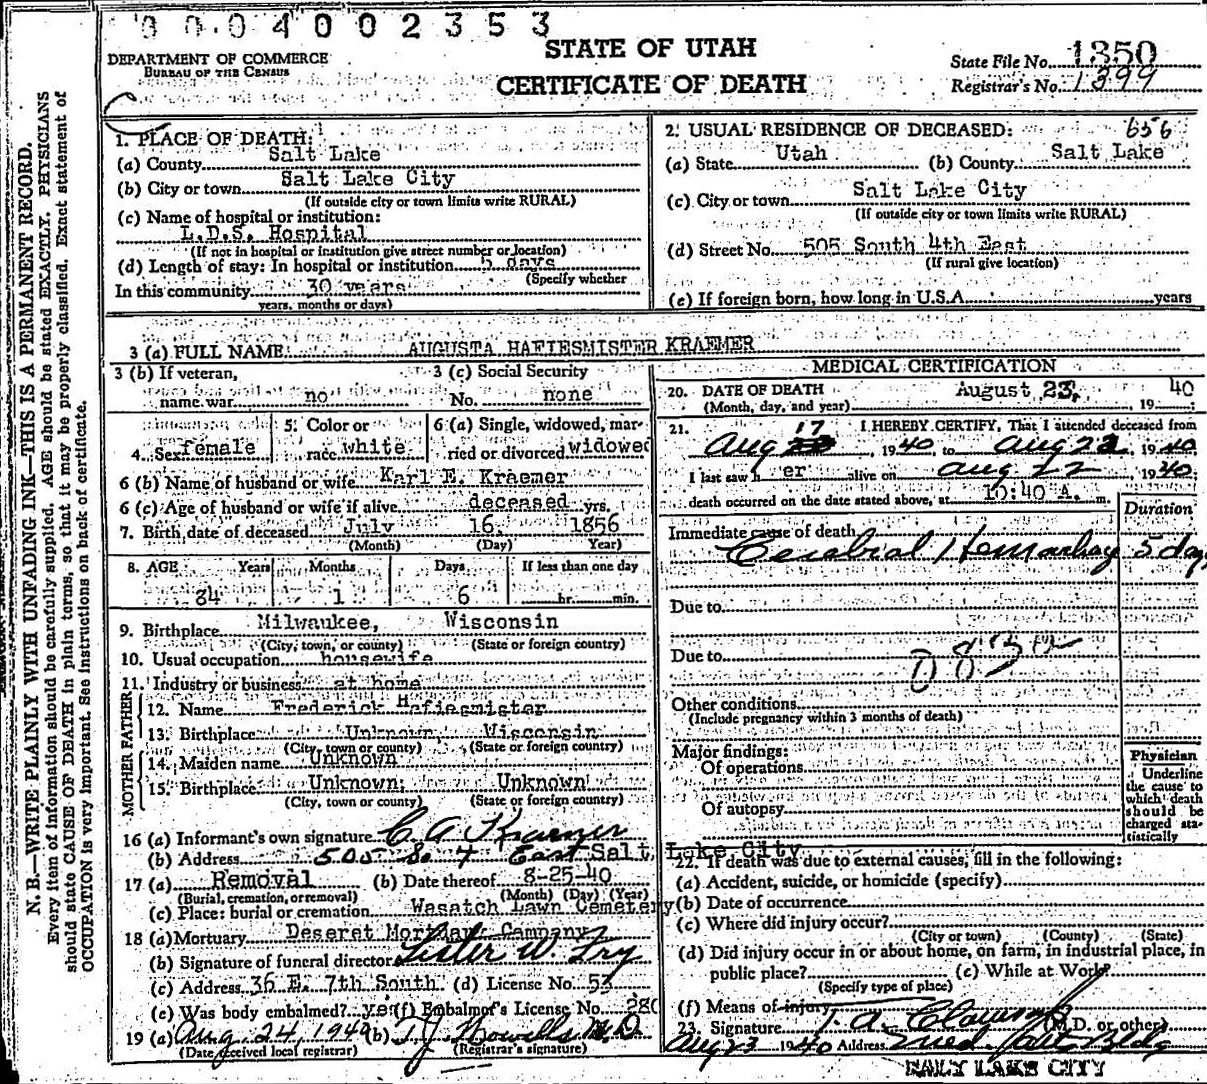 00.04002353
DEPARTMENT OF COMMERCE
BUREAU OF THE CENSUS
STATE OF UTAH
CERTIFICATE OF DEATH
State File No. 1350
Registrar's No. 1399
N. B.—WRITE PLAINLY WITH UNFADING INK—THIS IS A PERMANENT RECORD.
Every item of information should be carefully supplied. AGE should be stated EXACTLY. PHYSICIANS
should state CAUSE OF DEATH in plain terms, so that it may be properly classified. Exact statement of
OCCUPATION is very important. See instructions on back of certificate.
1. PLACE OF DEATH:
(a) County Salt Lake
(b) City or town Salt Lake City
(If outside city or town limits write RURAL)
(c) Name of hospital or institution:
L.D.S. Hospital
(If not in hospital or institution give street number or location)
(d) Length of stay: In hospital or institution 5 days
(Specify whether
In this community 30 years
years, months or days)
2. USUAL RESIDENCE OF DECEASED: 656
(a) State Utah (b) County Salt Lake
(c) City or town Salt Lake City
(If outside city or town limits write RURAL)
(d) Street No. 505 South 4th East
(If rural give location)
(e) If foreign born, how long in U.S.A. years
3 (a) FULL NAME AUGUSTA HAFIESMISTER KRAEMER
3 (b) If veteran,
name war no
3 (c) Social Security
No. none
4. Sex female
5. Color or
race white
6 (a) Single, widowed, mar-
ried or divorced widowed
6 (b) Name of husband or wife Karl E. Kraemer
6 (c) Age of husband or wife if alive deceased yrs.
7. Birth date of deceased July 16, 1856
(Month) (Day) Year)
8. AGE Years Months Days If less than one day
84 1 6 hr. min.
9. Birthplace Milwaukee, Wisconsin
(City, town, or county) (State or foreign country)
10. Usual occupation housewife
11. Industry or business at home
FATHER
12. Name Frederick Hafiesmister
13. Birthplace Unknown, Wisconsin
(City, town or county) (State or foreign country)
MOTHER
14. Maiden name Unknown
15. Birthplace Unknown, Unknown
(City, town or county) (State or foreign country)
16 (a) Informant's own signature C A Kraemer
(b) Address 505 So. 4 East Salt Lake City
17 (a) Removal (b) Date thereof 8-25-40
(Burial, cremation, or removal) (Month) (Day) (Year)
(c) Place: burial or cremation Wasatch Lawn Cemetery
18 (a) Mortuary Deseret Mortuary Company
(b) Signature of funeral director Lester W. Fry
(c) Address 36 E. 7th South (d) License No. 53
(e) Was body embalmed? yes (f) Embalmer's License No. 280
19 (a) Aug. 24, 1940 (b) T J Howells M.D
(Date received local registrar) (Registrar's signature)
MEDICAL CERTIFICATION
20. DATE OF DEATH August 23, 19 40
(Month, day, and year)
21. I HEREBY CERTIFY, That I attended deceased from
Aug 17, 1940, to Aug 22, 1940
I last saw her alive on Aug 22, 1940;
death occurred on the date stated above, at 10:40 A. m.
Duration
Immediate cause of death
Cerebrial Hemorhag 5 days
Due to
Due to
Other conditions
(Include pregnancy within 3 months of death)
Major findings:
Of operations
Of autopsy
Physician
Underline
the cause to
which death
should be
charged sta-
tistically
22. If death was due to external causes, fill in the following:
(a) Accident, suicide, or homicide (specify)
(b) Date of occurrence
(c) Where did injury occur?
(City or town) (County) (State)
(d) Did injury occur in or about home, on farm, in industrial place, in
public place? (e) While at Work?
(Specify type of place)
(f) Means of injury
23. Signature T. A. Clawson (M.D. or other)
Aug 23 1940 Address Med. Arts Bldg
SALT LAKE CITY